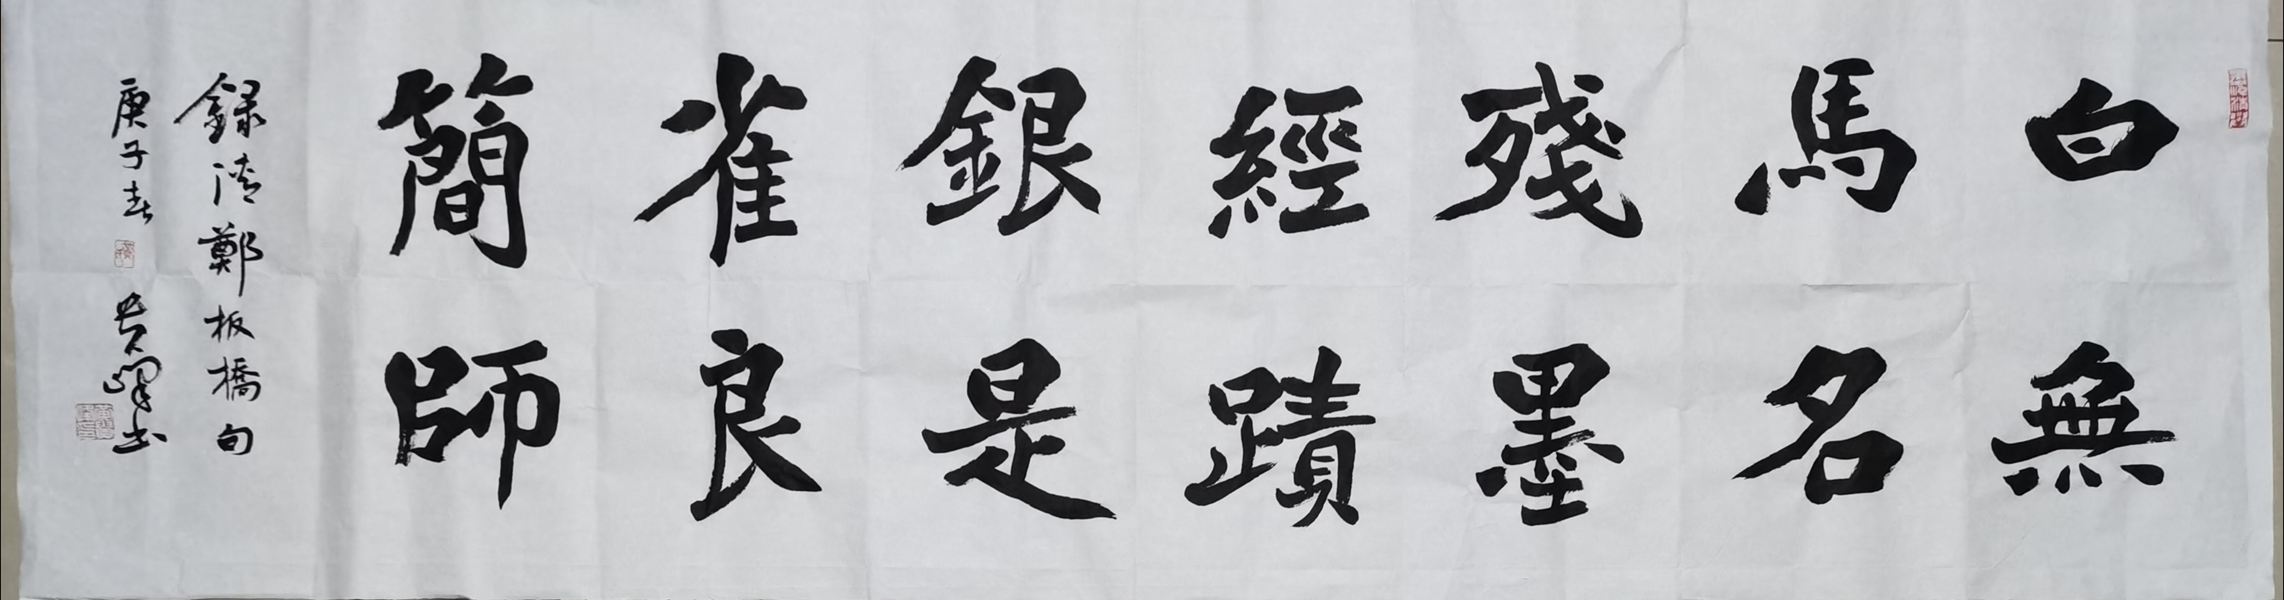 白馬殘經銀雀簡
無名墨蹟是良師
錄清鄭板橋句
庚子春 嶧書